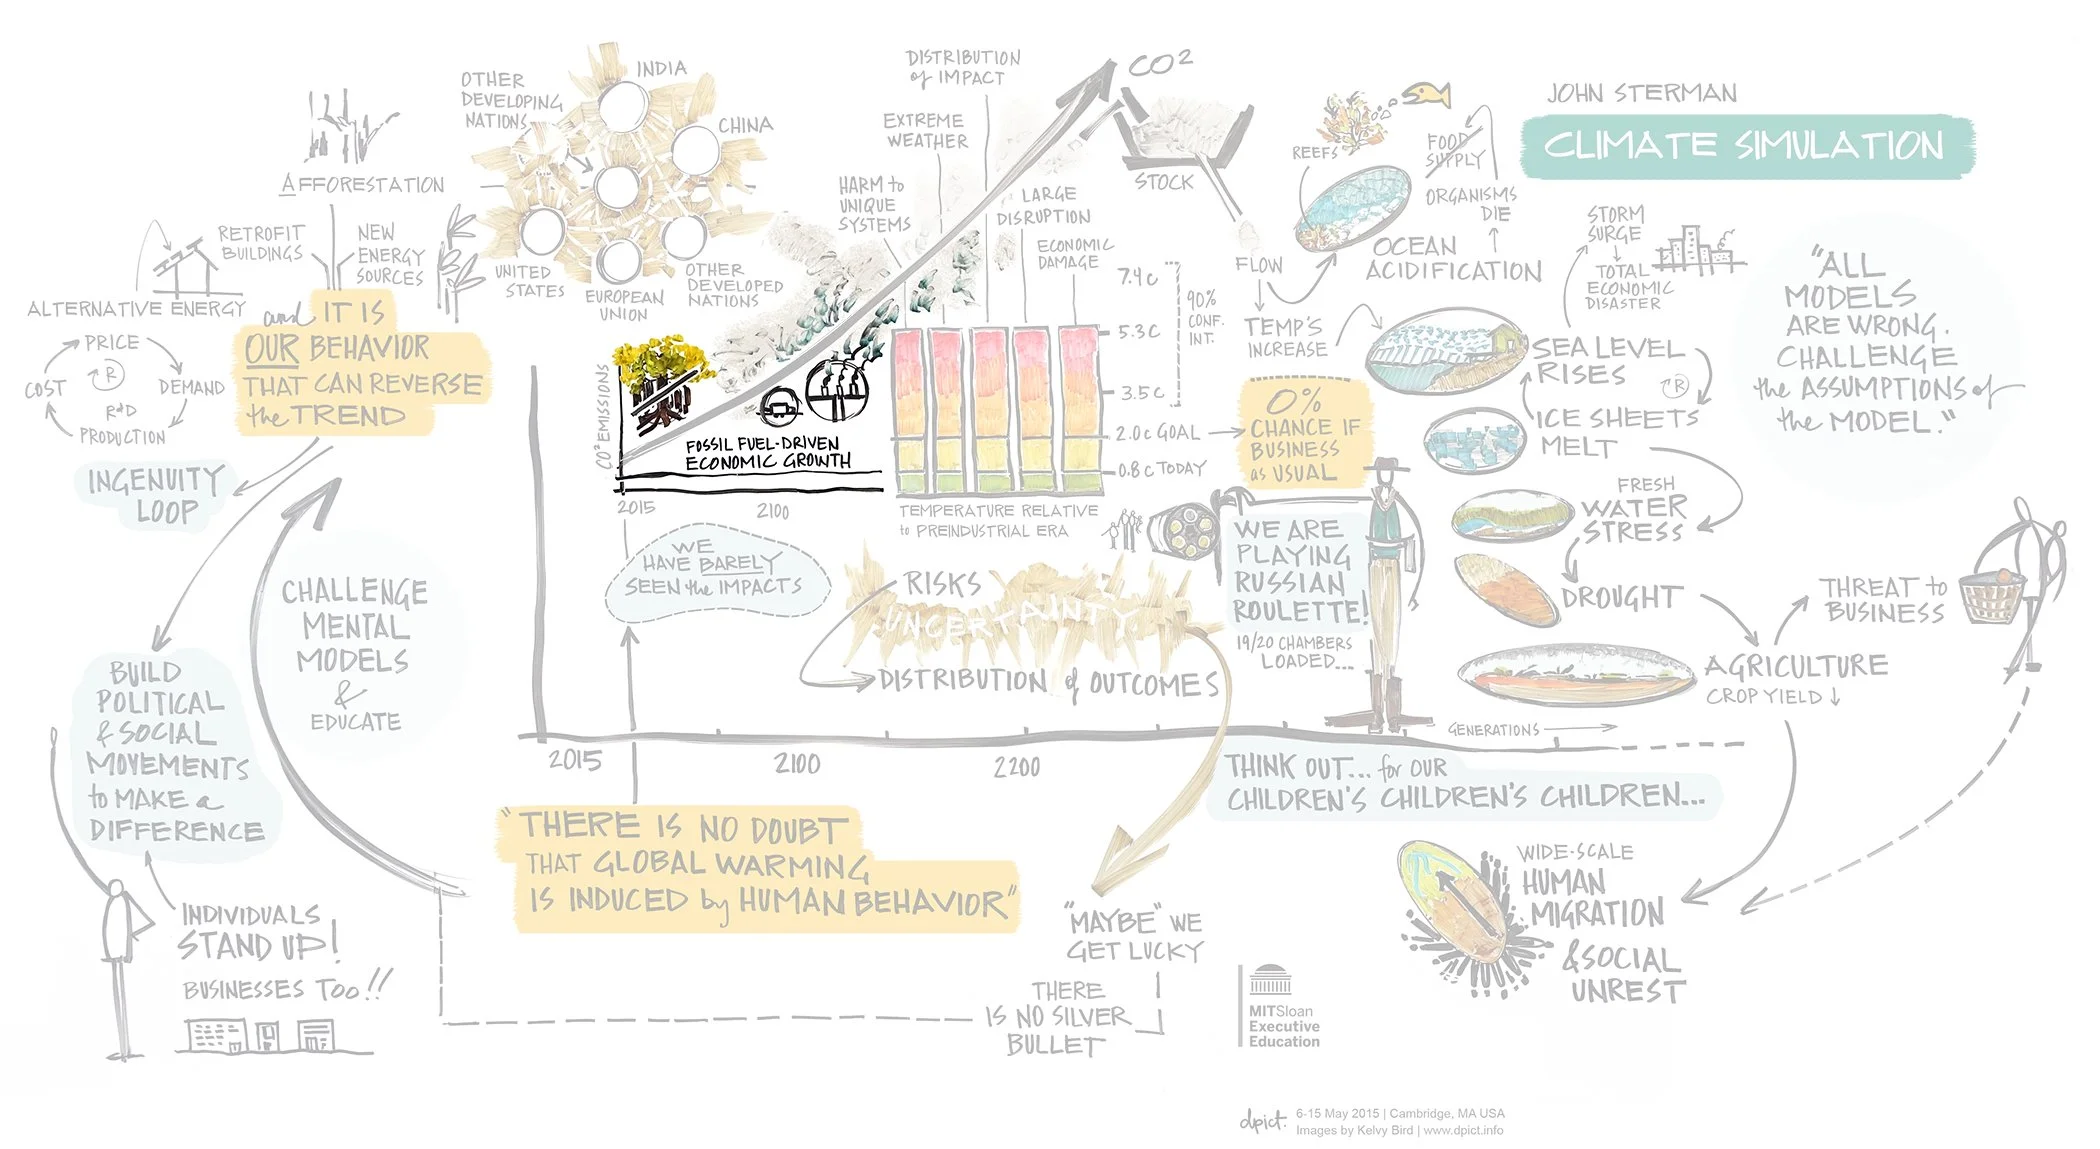 JOHN STERMAN
CLIMATE SIMULATION
OTHER
DEVELOPING
NATIONS
INDIA
CHINA
UNITED
STATES
EUROPEAN
UNION
OTHER
DEVELOPED
NATIONS
AFFORESTATION
RETROFIT
BUILDINGS
NEW
ENERGY
SOURCES
ALTERNATIVE ENERGY
PRICE
COST
R
DEMAND
R&D
PRODUCTION
and IT IS
OUR BEHAVIOR
THAT CAN REVERSE
the TREND
INGENUITY
LOOP
CHALLENGE
MENTAL
MODELS
&
EDUCATE
BUILD
POLITICAL
& SOCIAL
MOVEMENTS
to MAKE a
DIFFERENCE
INDIVIDUALS
STAND UP!
BUSINESSES TOO!!
CO² EMISSIONS
FOSSIL FUEL-DRIVEN
ECONOMIC GROWTH
2015
2100
WE
HAVE BARELY
SEEN the IMPACTS
DISTRIBUTION
of IMPACT
EXTREME
WEATHER
HARM to
UNIQUE
SYSTEMS
LARGE
DISRUPTION
ECONOMIC
DAMAGE
CO²
STOCK
FLOW
7.4 C
5.3 C
3.5 C
2.0 C GOAL
0.8 C TODAY
90%
CONF.
INT.
TEMPERATURE RELATIVE
to PREINDUSTRIAL ERA
0%
CHANCE IF
BUSINESS
as USUAL
WE ARE
PLAYING
RUSSIAN
ROULETTE!
19/20 CHAMBERS
LOADED...
RISKS
UNCERTAINTY
DISTRIBUTION of OUTCOMES
REEFS
FOOD
SUPPLY
ORGANISMS
DIE
OCEAN
ACIDIFICATION
TEMP'S
INCREASE
STORM
SURGE
TOTAL
ECONOMIC
DISASTER
SEA LEVEL
RISES
R
ICE SHEETS
MELT
FRESH
WATER
STRESS
DROUGHT
AGRICULTURE
CROP YIELD ↓
THREAT to
BUSINESS
"ALL
MODELS
ARE WRONG.
CHALLENGE
the ASSUMPTIONS of
the MODEL."
GENERATIONS
2015
2100
2200
THINK OUT... for OUR
CHILDREN'S CHILDREN'S CHILDREN...
"THERE IS NO DOUBT
THAT GLOBAL WARMING
IS INDUCED by HUMAN BEHAVIOR"
"MAYBE" WE
GET LUCKY
THERE
IS NO SILVER
BULLET
WIDE-SCALE
HUMAN
MIGRATION
& SOCIAL
UNREST
MITSloan
Executive
Education
dpict.
6-15 May 2015 | Cambridge, MA USA
Images by Kelvy Bird | www.dpict.info